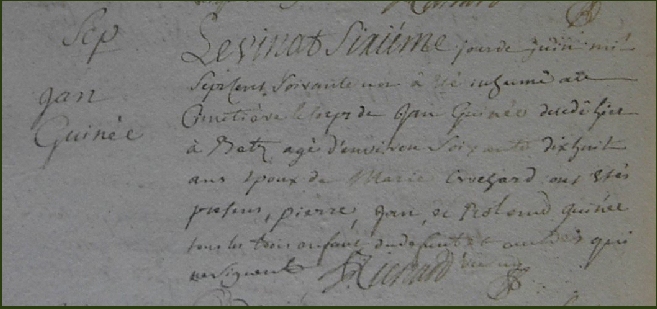 Sep
Jan
Guinée
Le vint Sixiéme jour de juin mil
Sept Cens Soixante un à été inhumé au
Cimetiére le corps de Jan Guinée decédé hier
à Batz agé d'environ Soixante dixhuit
ans Epoux de Marie Crochard ont étés
presens, pierre, Jan, et Rolland Guinée
tous les trois enfans du defunt et autres qui
ne signent Ricard